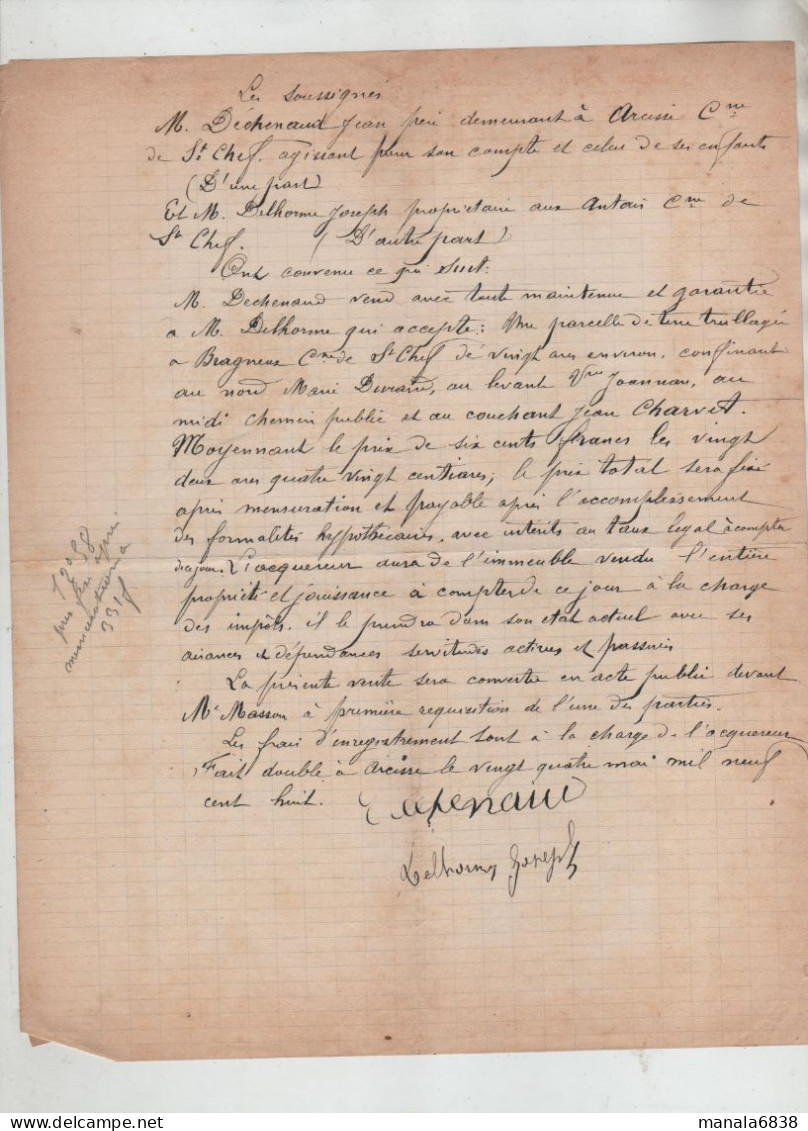 Les soussignés
M. Dechenaud Jean père demeurant à Arcisse Cne
de St Chef. agissant pour son compte et celui de ses enfants
(D'une part)
Et M. Delhorme Joseph propriétaire aux Antais Cne de
St Chef. (D'autre part)
Ont convenu ce qui suit:
M. Dechenaud vend avec toute maintenue et garantie
a M. Delhorme qui accepte: Une parcelle de terre trullagée
a Bragneux Cne de St Chef de vingt ares environ, confinant
au nord Marie Durand, au levant Vve Joannan, au
midi chemin public et au couchant Jean Charvet.
Moyennant le prix de six cents francs les vingt
deux ares quatre vingt centiares; le prix total sera fixé
après mensuration et payable après l'accomplissement
des formalités hypothécaires, avec intérêts au taux légal à compter
du jour. L'acquereur aura de l'immeuble vendu l'entière
propriété et jouissance à compter de ce jour à la charge
des impôts. il le prendra dans son état actuel avec ses
aisances et dépendances servitudes actives et passives
La présente vente sera convertie en acte public devant
Me Masson à première requisition de l'une des parties.
Les frais d'enregistrement sont à la charge de l'acquereur
Fait double à Arcisse le vingt quatre mai mil neuf
cent huit.
Dechenaud
Delhorme Joseph
12a 58
prix fixé après
mensuration a
331f
manala6838